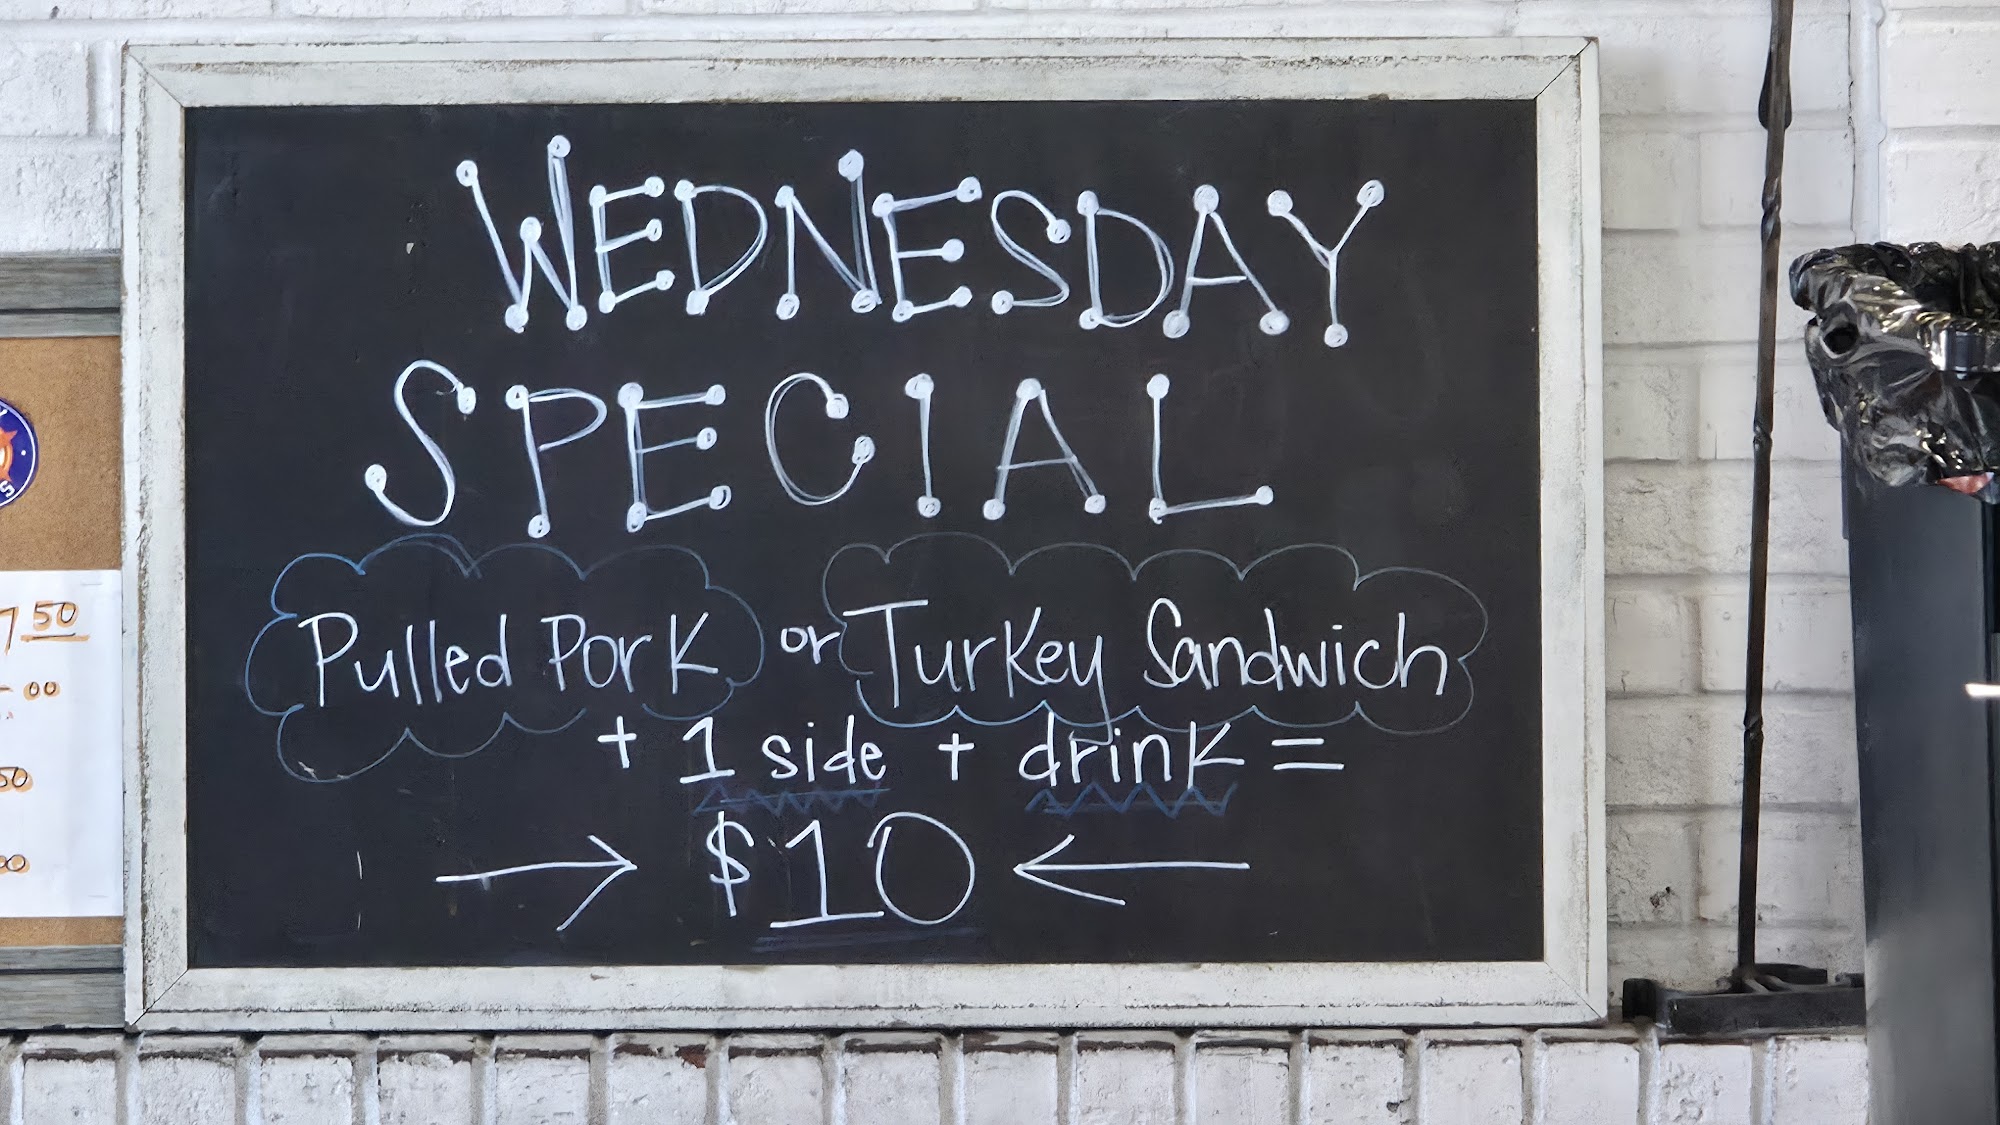 WEDNESDAY
SPECIAL
Pulled Pork or Turkey Sandwich
+ 1 side + drink =
→ $10 ←
50
00
50
00